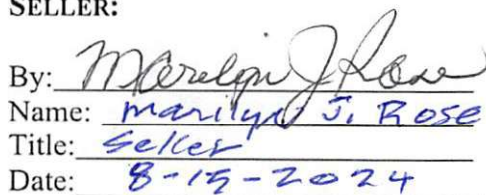 SELLER:
By: Marilyn J Rose
Name: Marilyn J. Rose
Title: Seller
Date: 8-15-2024